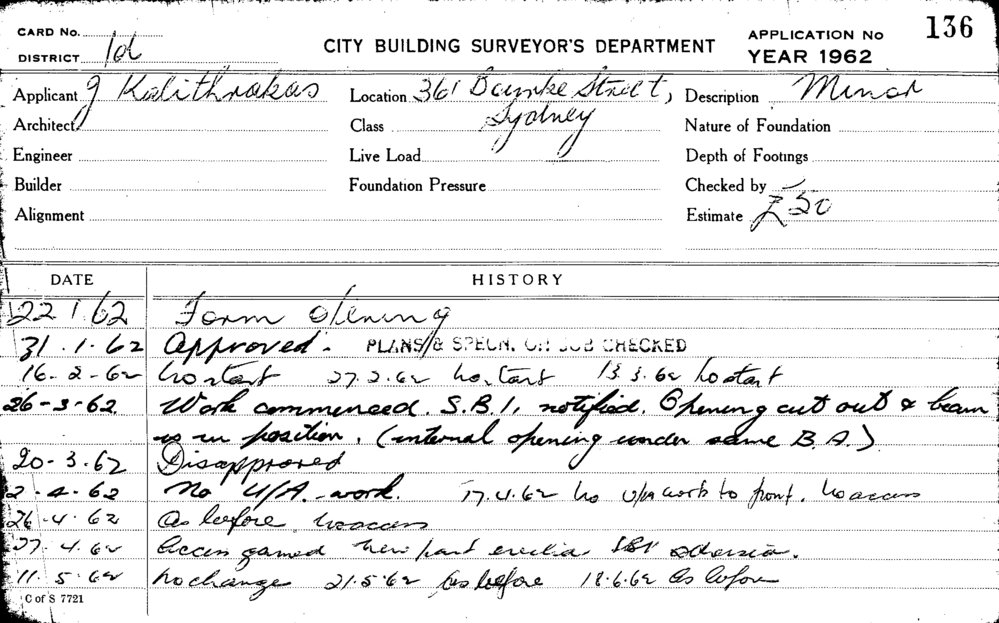 CARD No.
DISTRICT
CITY BUILDING SURVEYOR'S DEPARTMENT
APPLICATION No 136
YEAR 1962
Applicant J Kalithrakas Location 361 Bourke Street, Description Minor
Architect Class Sydney Nature of Foundation
Engineer Live Load Depth of Footings
Builder Foundation Pressure Checked by
Alignment Estimate £50
DATE HISTORY
22 1 62 Form opening
31.1.62 Approved. PLANS & SPECN. ON JOB CHECKED
16-2-62 No start 27.2.62 No start 13.3.62 No start
26-3-62. Work commenced. S.B.I. notified. Opening cut out & beam
is in position. (internal opening under same B.A.)
20-3.62 Disapproved
2-4-62 No U/A. work. 17.4.62 No U/A work to front. No access
26.4.62 As before, no access
27.4.62 Access gained new part erected SBI
11.5.62 No change 21.5.62 As before 18.6.62 As before
C of S 7721